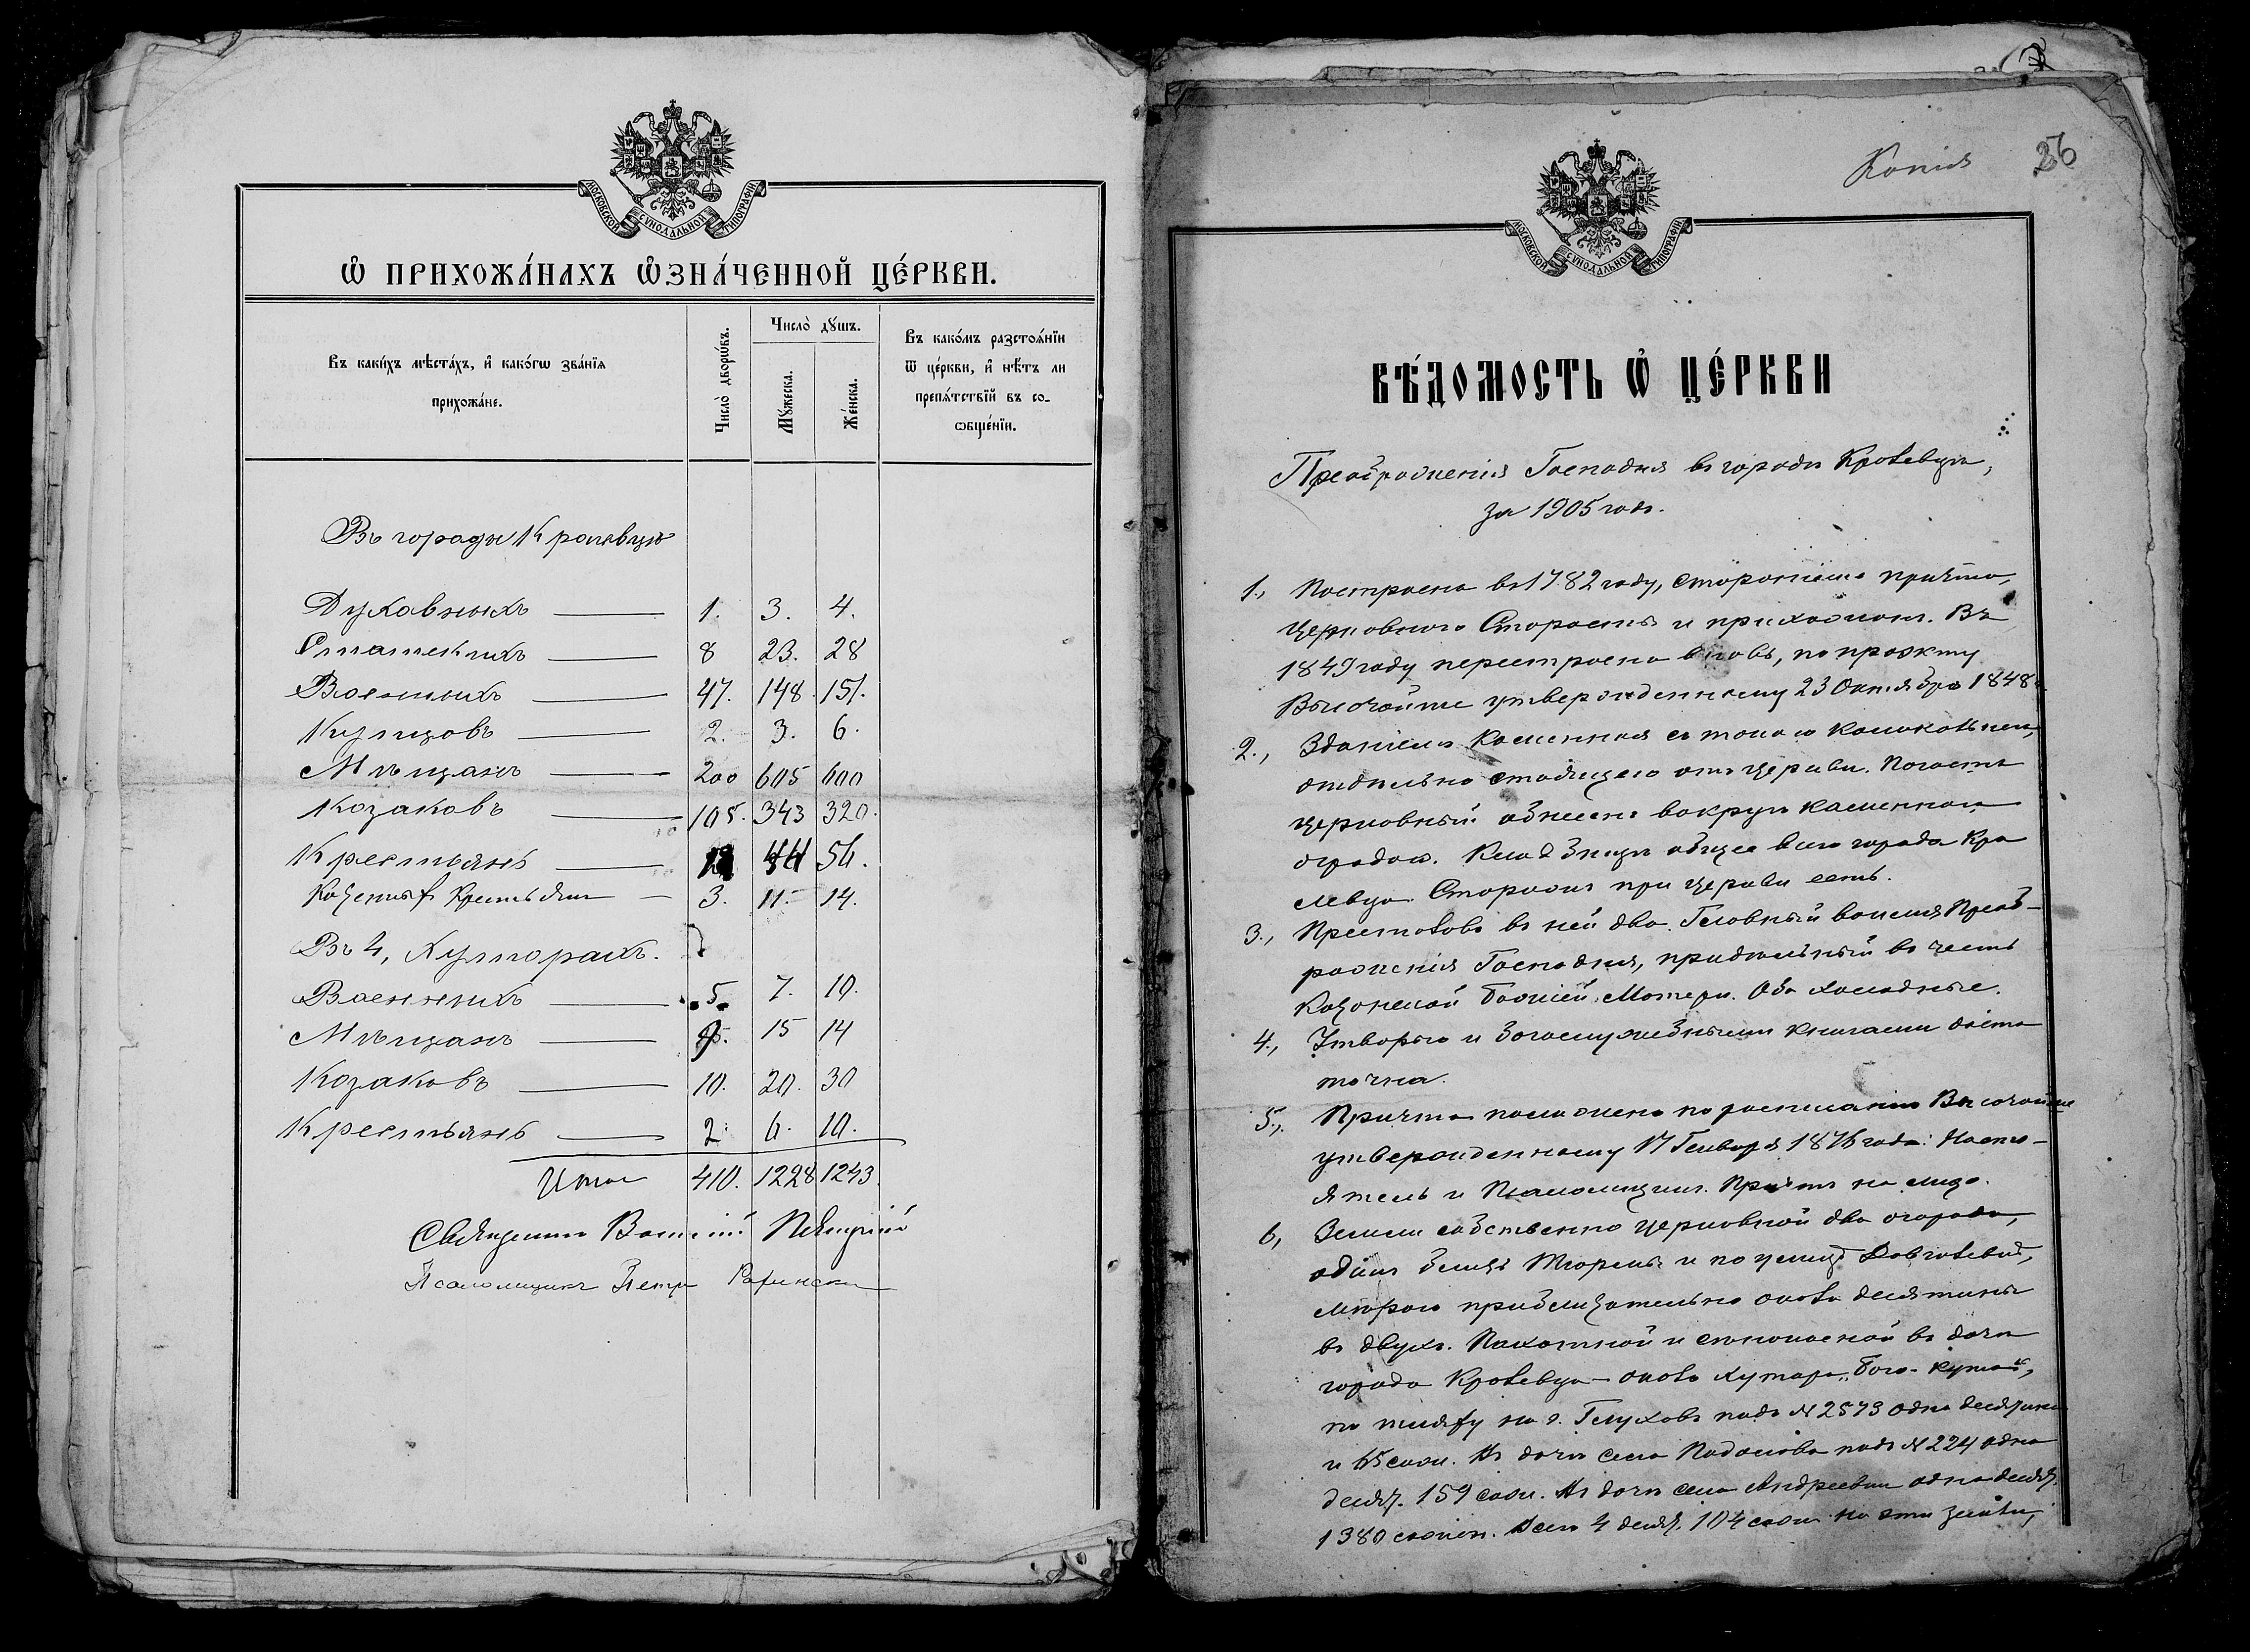 МОСКОВСКОЙ СѴНОДАЛЬНОЙ ТИПОГРАФІИ
Ѡ ПРИХОЖА́НАХЪ Ѡ҆ЗНА́ЧЕННОЙ ЦЕ́РКВИ.
Въ каки́хъ мѣста́хъ, и҆ како́гѡ зва́нїѧ
прихожа́не.
Число̀ дворѡ́въ.
Число̀ дꙋ́шъ.
Мꙋ́жеска.
Же́нска.
Въ како́мъ разстоѧ́нїи
ѿ це́ркви, и҆ нѣ́тъ ли
препѧ́тствїй въ со-
ѻбще́нїи.
Въ городѣ Кролевцѣ
Духовныхъ 1. 3. 4.
Статскихъ 8 23. 28
Военныхъ 47. 148. 151.
Купцовъ 2. 3. 6.
Мѣщанъ 200 605 600
Козаковъ 105. 343 320.
Крестьянъ 44 56.
Казенныхъ Крестьянъ 3. 11. 14.
Въ 4, Хуторахъ.
Военныхъ 5. 7. 10.
Мѣщанъ 15 14
Козаковъ 10. 20. 30
Крестьянъ 2. 6. 10.
Итого 410. 1228 1243.
Священникъ Василій
Псаломщикъ Петръ
Копія 26
МОСКОВСКОЙ СѴНОДАЛЬНОЙ ТИПОГРАФІИ
ВѢ́ДОМОСТЬ Ѡ҆ ЦЕ́РКВИ
Преображенія Господня въ городѣ Кролевцѣ,
за 1905 годъ.
1., Построена въ 1782 году, стараніемъ причта,
церковнаго Старосты и прихожанъ. Въ
1849 году перестроена вновь, по проэкту
Высочайше утвержденному 23 Октября 1848 г.
2., Зданіемъ каменная съ такою колокольнею,
отдѣльно стоящею отъ церкви. Погостъ
церковный обнесенъ вокругъ каменною
оградою. Кладбище общее всего города Кро
левца. Сторожка при церкви есть.
3., Престоловъ въ ней два. Главный во имя Преоб-
раженія Господня, придѣльный въ честь
Казанской Божіей Матери. Оба холодные.
4., Утварью и богослужебными книгами доста
точна.
5., Причта положено по росписанію Высочайше
утвержденному 17 Генваря 1876 года: Насто-
ятель и Псаломщикъ. Причтъ на лицо.
6, Земли собственно церковной два огорода,
одинъ близъ Тюрьмы и по улицѣ
мѣрою приблизительно около десятины
въ двухъ. Пахотной и сѣнокосной въ дачѣ
города Кролевца — около хутора
по шляху на г. Глуховъ подъ № 2573 одна десятина
и 65 саж. Въ дачѣ села Подолова подъ № 224 одна
десят. 159 саж. Въ дачѣ села Андреевки одна десят.
1380 сажен. Всего 4 десят. 104 саж. На эти земли,